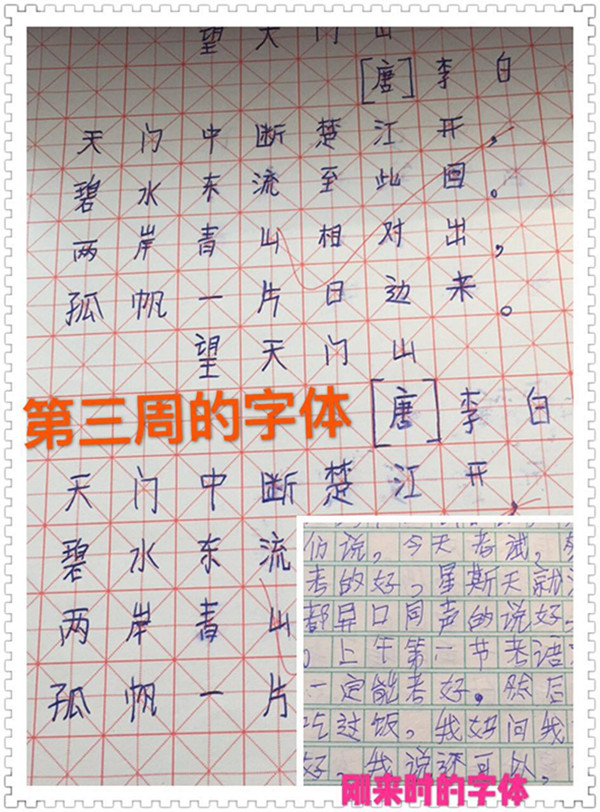 望天门山
[唐]李白
天门中断楚江开,
碧水东流至此回。
两岸青山相对出,
孤帆一片日边来。
望天门山
第三周的字体
[唐]李白
天门中断楚江开
碧水东流
两岸青山
孤帆一片
们说。今天考试,
考的好,星斯天就
都异口同声的说好
。上午第一节考语
一定能考好。然后
吃过饭。我妈问我
好,我说还可以,
刚来时的字体